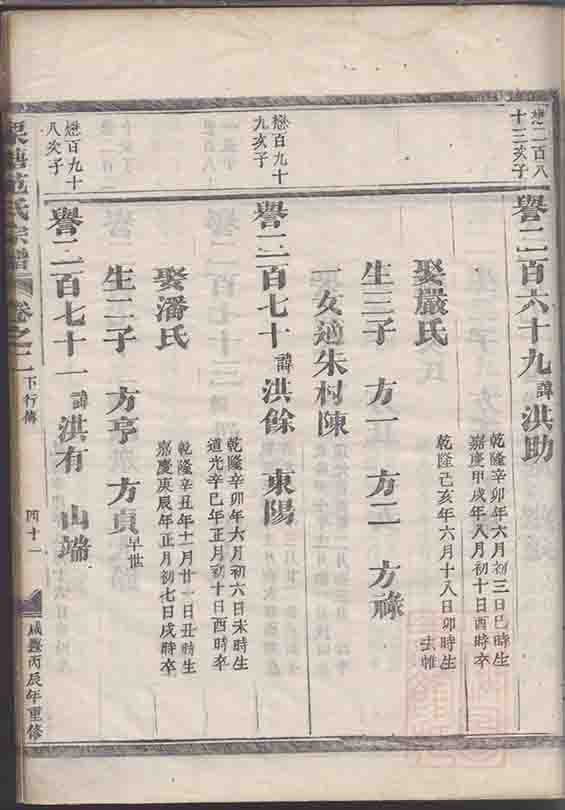 懋二百八
十三次子
譽二百六十九 諱 洪助
乾隆辛卯年六月初三日巳時生
嘉慶甲戌年八月初十日酉時卒
娶嚴氏
乾隆己亥年六月十八日卯時生
去帷
生三子 方一 方二 方祿
一女適朱村陳
懋百九十
九次子
譽二百七十 諱 洪餘 東陽
乾隆辛卯年六月初六日未時生
道光辛巳年正月初十日酉時卒
娶潘氏
乾隆辛丑年十一月廿一日丑時生
嘉慶庚辰年正月初七日戌時卒
生二子 方亨 方貞 早世
懋百九十
八次子
譽二百七十一 諱 洪有 山端
氏宗譜 卷之二 下行傳 四十一 咸豐丙辰年重修